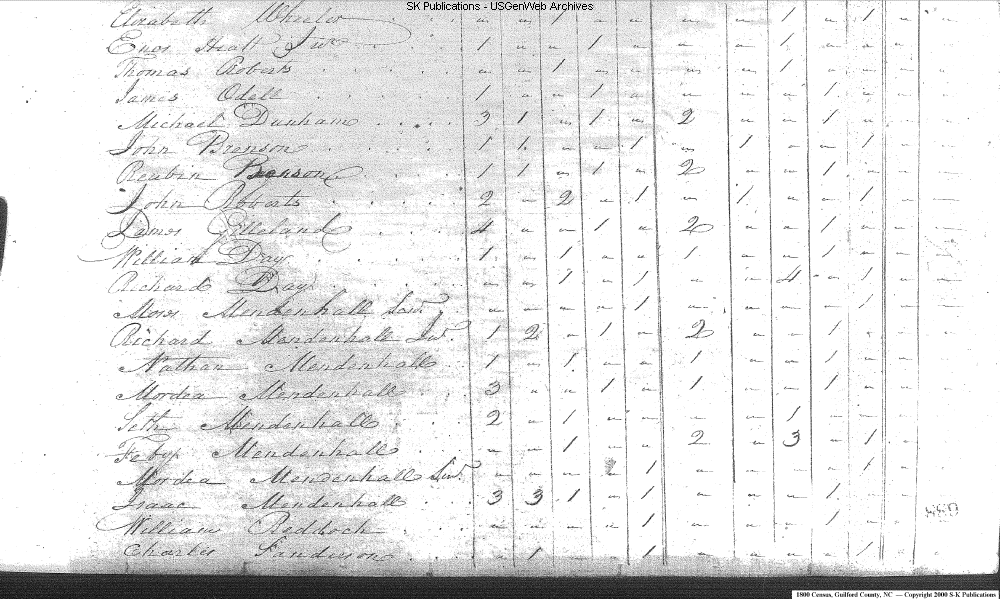 SK Publications - USGenWeb Archives
Elizabeth Wheeler " " " 1 " " " " 1 " 1 "
Enos Hiatt Junr 1 " " 1 " " " 1 " " "
Thomas Roberts " " 1 " " " " 1 " " "
James Odell 1 " " 1 " " " " 1 " "
Michael Dunham 3 1 " 1 " 2 " " 1 " "
John Bronson 1 1 " " 1 " 1 " " 1 "
Reubin Bronson 1 1 " 1 " 2 " " 1 " "
John Roberts 2 " 2 " 1 " 1 " " 1 "
James Gilleland 4 " " 1 " 2 " " 1 " "
William Day 1 " 1 " " 1 " " 1 " "
Richard Day " " 1 " 1 " " 4 " 1 "
Moses Mendenhall " " " " 1 " " " " 1 "
Richard Mendenhall 1 2 " 1 " 2 " " 1 " "
Nathan Mendenhall 1 " 1 " " 1 " " 1 " "
Mordea Mendenhall 3 " " 1 " 1 " " 1 " "
Seth Mendenhall 2 " 1 " " " " 1 " " "
Feby Mendenhall " " 1 " " 2 " 3 " 1 "
Mordea Mendenhall Senr " " " " 1 " " " " 1 "
Isaac Mendenhall 3 3 1 " 1 " " " 1 " "
William Reddock " " " " 1 " " " 1 " "
Charles " 1 " " 1 " " " " 1 "
1800 Census, Guilford County, NC — Copyright 2000 S-K Publications